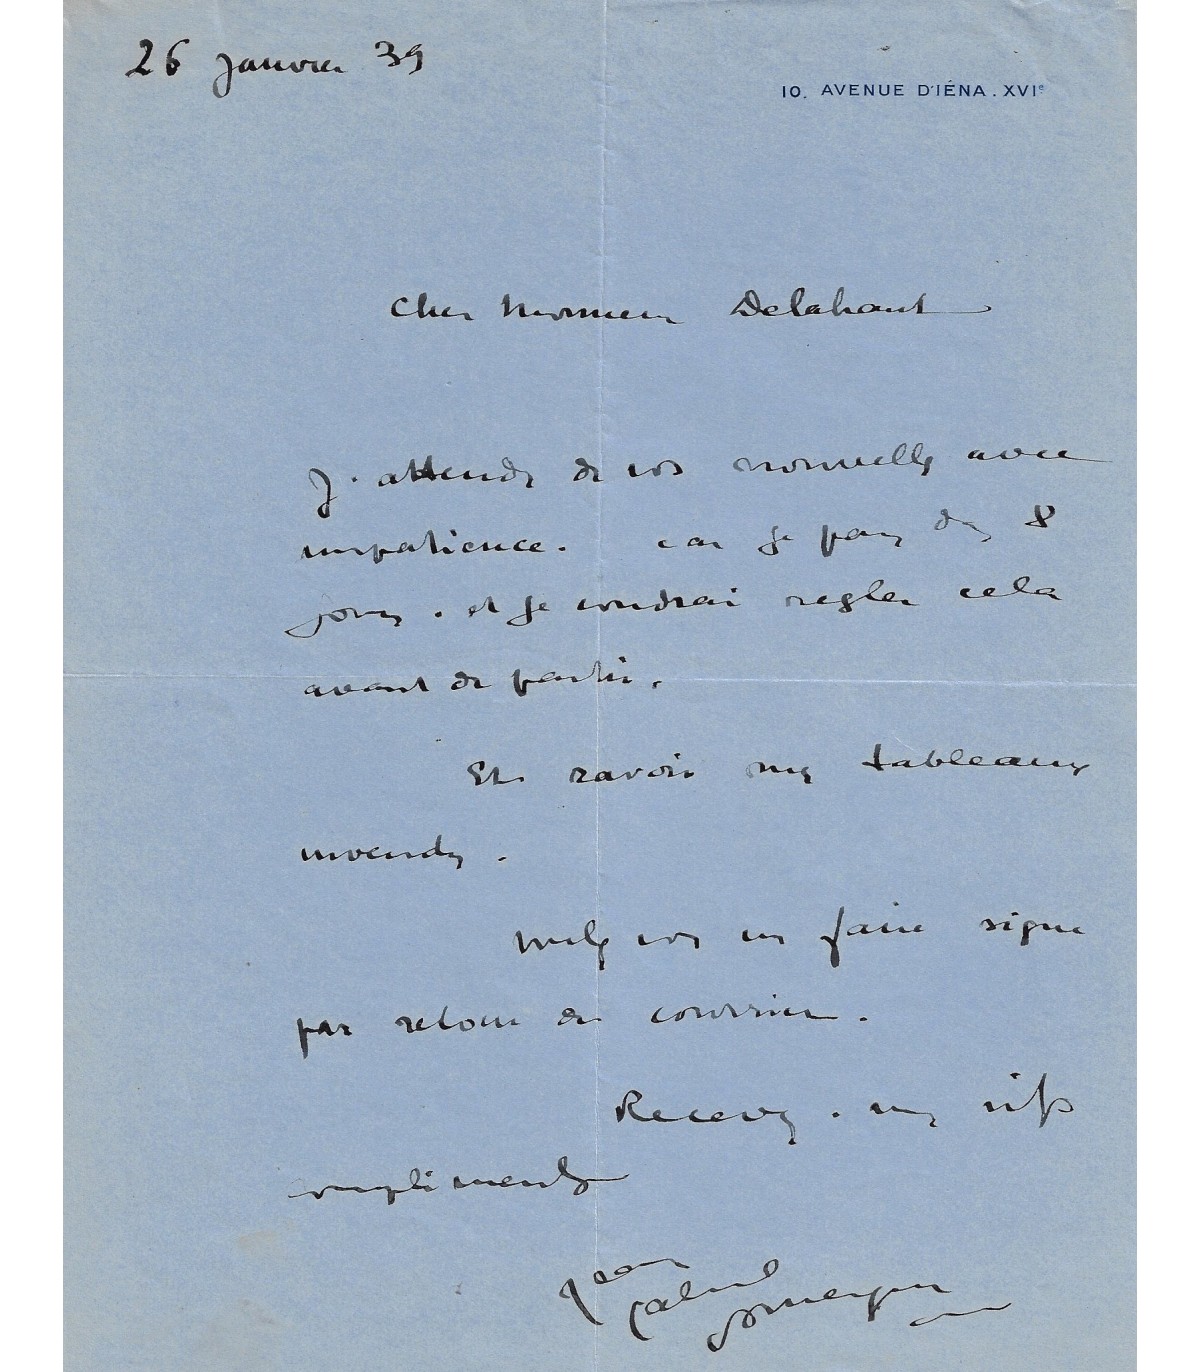 26 janvier 39
10. AVENUE D'IÉNA. XVIe
Cher Monsieur Delahaut
J'attends de vos nouvelles avec
impatience. car je pars dans 8
jours. et je voudrai regler cela
avant de partir.
Et ravoir mes tableaux
invendus.
Voulez vous me faire signe
par retour du courrier.
Recevez. mes
compliments
Jean
Gabriel
Domergue